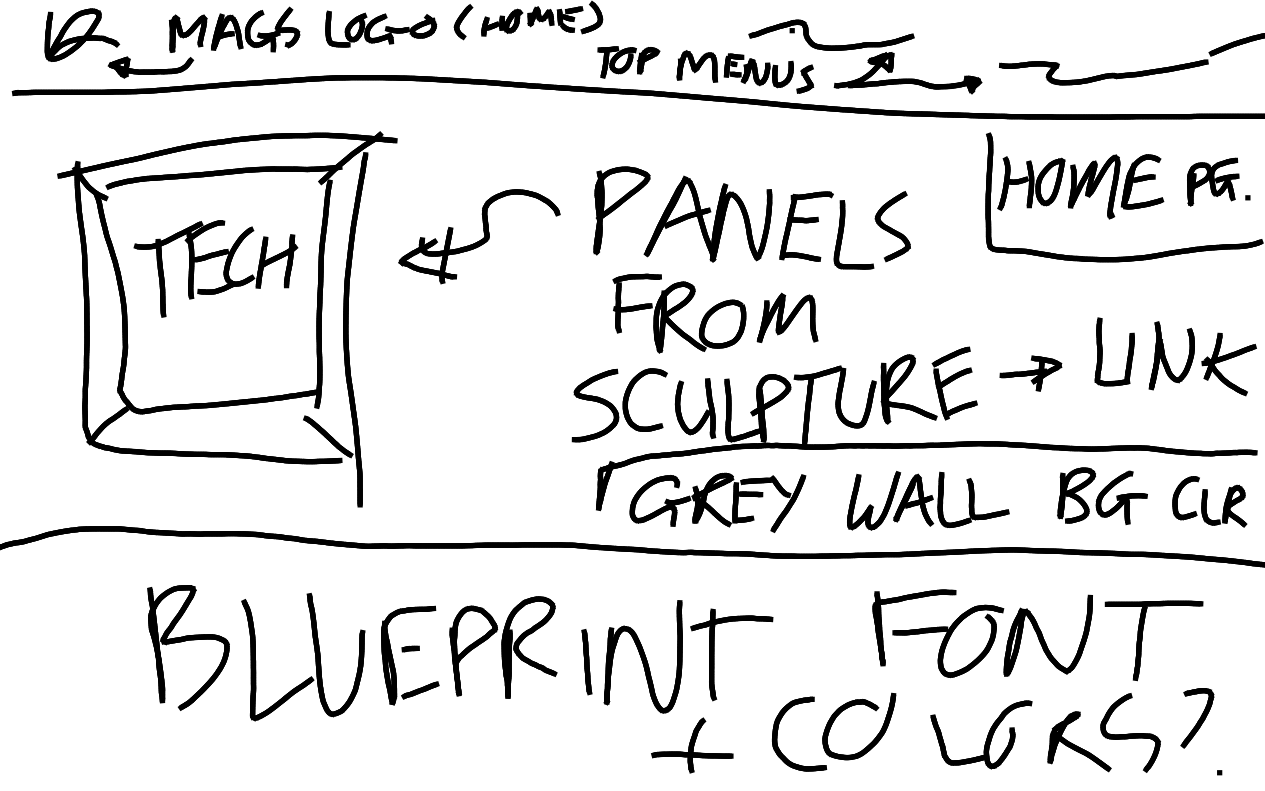 MAGS LOGO (HOME)
TOP MENUS
HOME PG.
TECH
PANELS
FROM
SCULPTURE → LINK
GREY WALL BG CLR
BLUEPRINT FONT
+ COLORS?